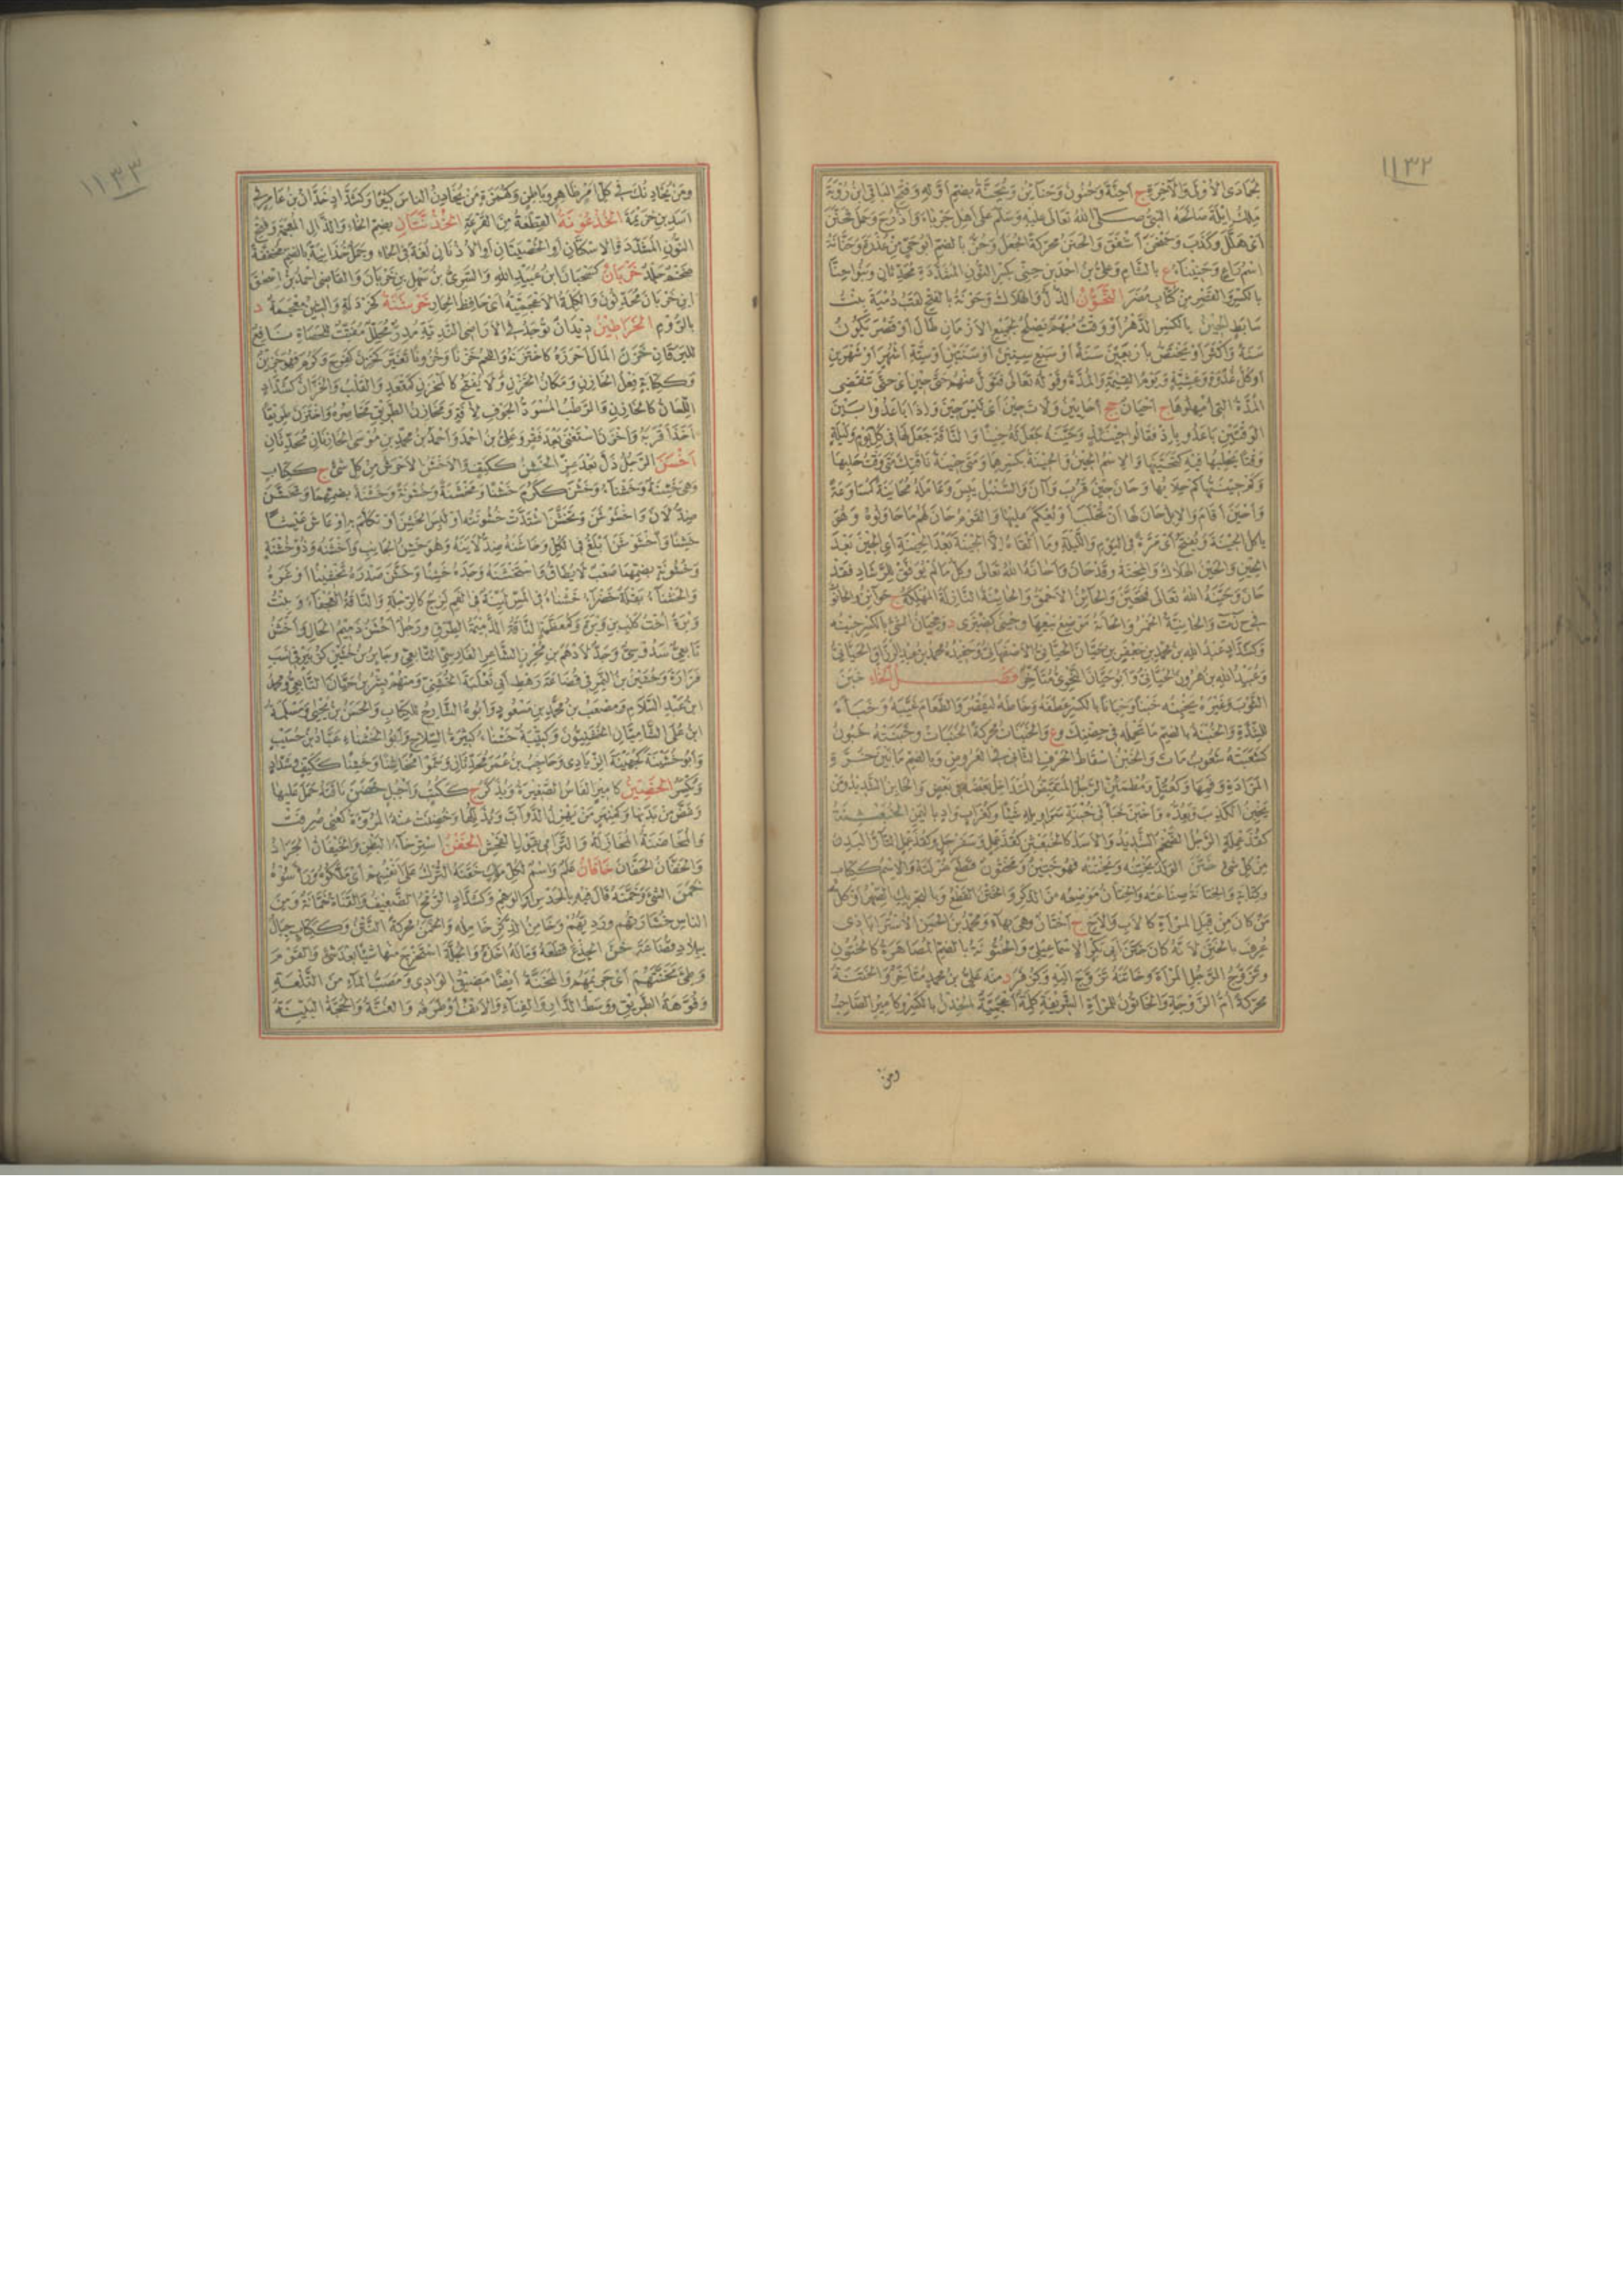 ١١٣٢
جمادى الأولى والآخرة ج أحنة وحنون وحنائن ويحنة بضم أوله وفتح الباقي ابن رؤبة
ملك أيلة صالحه النبي صلى الله تعالى عليه وسلم على أهل جرباء وأذرح وحمل فحنن
أي هلل وكذب وحنحن أشفق والحنن محركة الجعل وحن بالضم أبو حي من عذرة وحنانة
اسم راع وحنيناء ع بالشام وعلي بن أحمد بن حني بكسر النون المشددة محدثان وبنو حنا
بالكسر والقصر من كتاب مصر التحون الذل والهلاك وحونة بالفتح لقب دمية بنت
سابط الحين بالكسر الدهر أو وقت مبهم يصلح لجميع الأزمان طال أو قصر يكون
سنة وأكثر أو يختص بأربعين سنة أو سبع سنين أو سنتين أو ستة أشهر أو شهرين
أو كل غدوة وعشية ويوم القيمة والمدة وقوله تعالى فتول عنهم حتى حين أي حتى تنقضي
المدة التي أمهلوها ج أحيان جج أحايين ولات حين أي ليس حين وإذا باعدوا بين
الوقتين باعدوا بإذ فقالوا حينئذ وحينه جعل له حينا والناقة جعل لها في كل يوم وليلة
وقتا يحلبها فيه كتحينها والاسم الحين والحينة بكسرهما ومتى حينة ناقتك متى وقت حلبها
وكم حينتها كم حلابها وحان حين قرب وآن والسنبل يبس وعامله محاينة كمساوعة
وأحين أقام والإبل حان لها أن تحلب أو يعكم عليها والقوم حان لهم ما حاولوه وهو
يأكل الحينة ويفتح أي مرة في اليوم والليلة وما ألقاه إلا الحينة بعد الحينة أي الحين بعد
الحين والحين الهلاك والمحنة وقد حان وأحانه الله تعالى وكل ما لم يوفق للرشاد فقد
حان وحينه الله تعالى فتحين والحائن الأحمق والحائنة النازلة المهلكة ج حوائن والحانوت
في ح ن ت والحانية الخمر والحانة موضع بيعها وحينى كضيزى د ومحيان الشيء بالكسر حينه
وكشداد عبد الله بن محمد بن جعفر بن حيان الحياني الأصفهاني وحفيده محمد بن عبد الرزاق الحياني
وعبيد الله بن هرون الحياني وأبو حيان النحوي متأخر فصل الخاء خبن
الثوب وغيره يخبنه خبنا وخبانا بالكسر عطفه وخاطه ليقصر والطعام غيبه وخبأه
للشدة والخبنة بالضم ما تحمله في حضنك وع والخبنات محركة الخنبات وخبنته خبون
كشعبته شعوب مات والخبن إسقاط الحرف الثاني في العروض وبالضم ما بين خرت
المزادة وفمها وكعتل ومطمئن الرجل المتقبض المتداخل بعضه في بعض والخابن الشديد ومن
يخبن الكذب ويعده وأخبن خبأ في خبنة سراويله شيئا وكغراب واد باليمن الخبعثنة
كقذعملة الرجل الضخم الشديد والأسد كالخبعثن كقذعمل وسفرجل وكقذعمل التار البدن
من كل شيء ختن الولد يختنه ويختنه فهو ختين ومختون قطع غرلته والاسم ككتاب
وكتابة والختانة صناعته والختان موضعه من الذكر والختن القطع وبالتحريك الصهر أو كل
من كان من قبل المرأة كالأب والأخ ج أختان وهي بهاء ومحمد بن الحسن الأستراباذي
عرف بالختن لأنه كان ختن أبي بكر الإسماعيلي والختونة بالضم المصاهرة كالختون
وتزوج الرجل المرأة وخاتنه تزوج إليه وكزفر د منه علي بن محمد متأخر والختنة
محركة أم الزوجة والخاتون للمرأة الشريفة كلمة أعجمية الخدن بالكسر وكأمير الصاحب
ومن
١١٣٣
ومن يخادنك في كل أمر ظاهر وباطن وكهمزة من يخادن الناس كثيرا وكشداد خدان بن عامر في
أسد بن خزيمة الخذعونة القطعة من القرعة الخذنتان بضم الخاء والذال المعجمة وفتح
النون المشددة الإسكتان أو الخصيتان أو الأذنان لغة في الحاء وجمل خذانية بالضم مخففة
ضخم جلد خربان كسحبان ابن عبيد الله والسري بن سهل بن خربان والقاضي أحمد بن إسحق
ابن خربان محدثون والكلمة الأعجمية أي حافظ الحمار خرشنة كخردلة والشين معجمة د
بالروم الخراطين ديدان توجد في الأراضي الندية مدر محلل مفتت للحصاة نافع
لليرقان خزن المال أحرزه كاختزنه واللحم خزنا وخزونا تغير كخزن كفرح وكرم فهو خزين
وككتابة فعل الخازن ومكان الخزن ولا يفتح كالمخزن كمقعد والقلب والخزان كشداد
اللسان كالخازن والرطب المسود الجوف لآفة ومخازن الطريق مخاصره واختزن طريقا
أخذ أقربه وأخزن استغنى بعد فقر وعلي بن أحمد وأحمد بن محمد بن موسى الخازنان محدثان
أخسن الرجل ذل بعد عز الخشن ككتف والأخشن الأحرش من كل شيء ج ككتاب
وهي خشنة وخشناء وخشن ككرم خشنا ومخشنة وخشونة وخشنة بضمهما وتخشن
ضد لان واخشوشن وتخشن اشتدت خشونته أو لبس الخشن أو تكلم به أو عاش عيشا
خشنا واخشوشن أبلغ في الكل وخاشنه ضد لاينه وهو خشن الجانب وأخشنه وذو خشنة
وخشونة بضمهما صعب لا يطاق واستخشنه وجده خشنا وخشن صدره تخشينا أوغره
والخشناء بقلة خضراء خشناء في المس لينة في الفم لزج كالرجلة والناقة العجفاء وبنت
وبرة أخت كلب بن وبرة وكمعظمة الناقة الذميمة الطرق ورجل أخشن ذميم الحال وأخشن
تابعي سدوسي وجد لأدهم بن محرز الشاعر الفارسي التابعي وجابر بن خشين كزبير في نسب
فزارة وخشين بن النمر في قضاعة رهط أبي ثعلبة الخشني ومنهم بشر بن حيان التابعي ومحمد
ابن عبد السلام ومصعب بن محمد بن مسعود وأبوه الشارح للكتاب والحسن بن يحيى ومسلمة
ابن علي الشاميان الخشنيون وكتيبة خشناء كثيرة السلاح وأبو الخشناء عباد بن حسيب
وأبو خشينة كجهينة الزيادي وحاجب بن عمر محدثان وسموا مخاشنا وخشنا ككتف وشداد
وكسر الخصين كأمير الفاس الصغيرة ويذكر ج ككتب وأجبل خضن ناقته حمل عليها
وعض من بدنها وكمنبر من يهزل الدواب ويذللها وخضنت عنه المروءة كعني صرفت
والمخاضنة المغازلة والترامي بقول الفحش الخفن استرخاء البطن والخيفان الجراد
والخفان الخفان خاقان علم واسم لكل ملك خقنه الترك على أنفسهم أي ملكوه ورأسوه
خمن الشيء وخمنه قال فيه بالحدس أو الوهم وكشداد الرمح الضعيف والقناة خمانة ومن
الناس خشارتهم ورديهم وخامن الذكر خامله والخمن محركة النتن وككتاب جبال
ببلاد قضاعة خن الجذع قطعه وماله أخذه والجلة استخرج منها شيئا بعد شيء والقوم
وطئ مخنتهم أي حريمهم والمخنة أيضا مضيق الوادي ومصب الماء من التلعة
وفوهة الطريق ووسط الدار والفناء والأنف أو طرفه والغنة والمحجة البينة